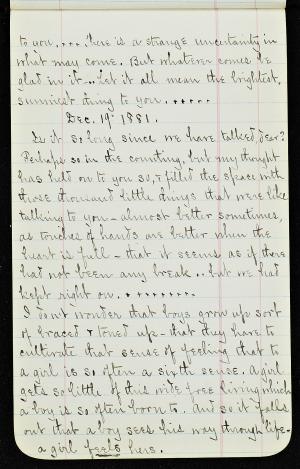 to you.... There is a strange uncertainty in
what may come. But whatever comes be
glad in it... Let it all mean the brightest,
sunniest thing to you......
Dec. 19th 1881.
Is it so long since we have talked, dear?
Perhaps so in the counting, but my thought
has held on to you so, & filled the space with
those thousand little things that were like
talking to you - almost better sometimes,
as touches of hands are better when the
heart is full - that it seems as if there
had not been any break.. but we had
kept right on........
I don't wonder that boys grow up sort
of braced & toned up - that they have to
cultivate that sense of feeling that to
a girl is so often a sixth sense. A girl
gets so little of this wide free living which
a boy is so often born to. And so it falls
out that a boy sees his way through life -
a girl feels hers.